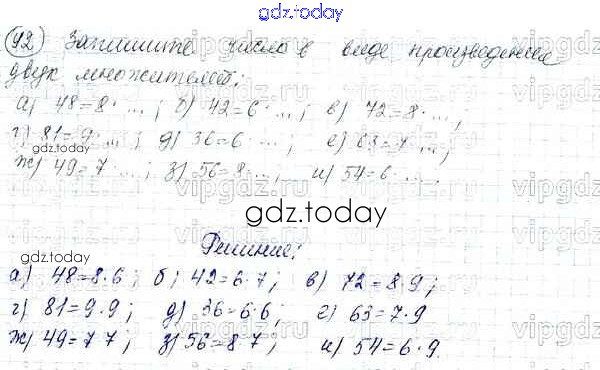 gdz.today
92 Запишите число в виде произведения
двух множителей:
а) 48=8· ...; б) 42=6· ...; в) 72=8· ...;
г) 81=9· ...; д) 36=6· ...; е) 63=7· ...;
ж) 49=7· ...; з) 56=8· ...; и) 54=6· ...
gdz.today
Решение:
а) 48=8·6; б) 42=6·7; в) 72=8·9;
г) 81=9·9; д) 36=6·6; е) 63=7·9
ж) 49=7 7; з) 56=8·7; и) 54=6·9.
gdz.today
gdz.today
gdz.today
vipgdz.ru